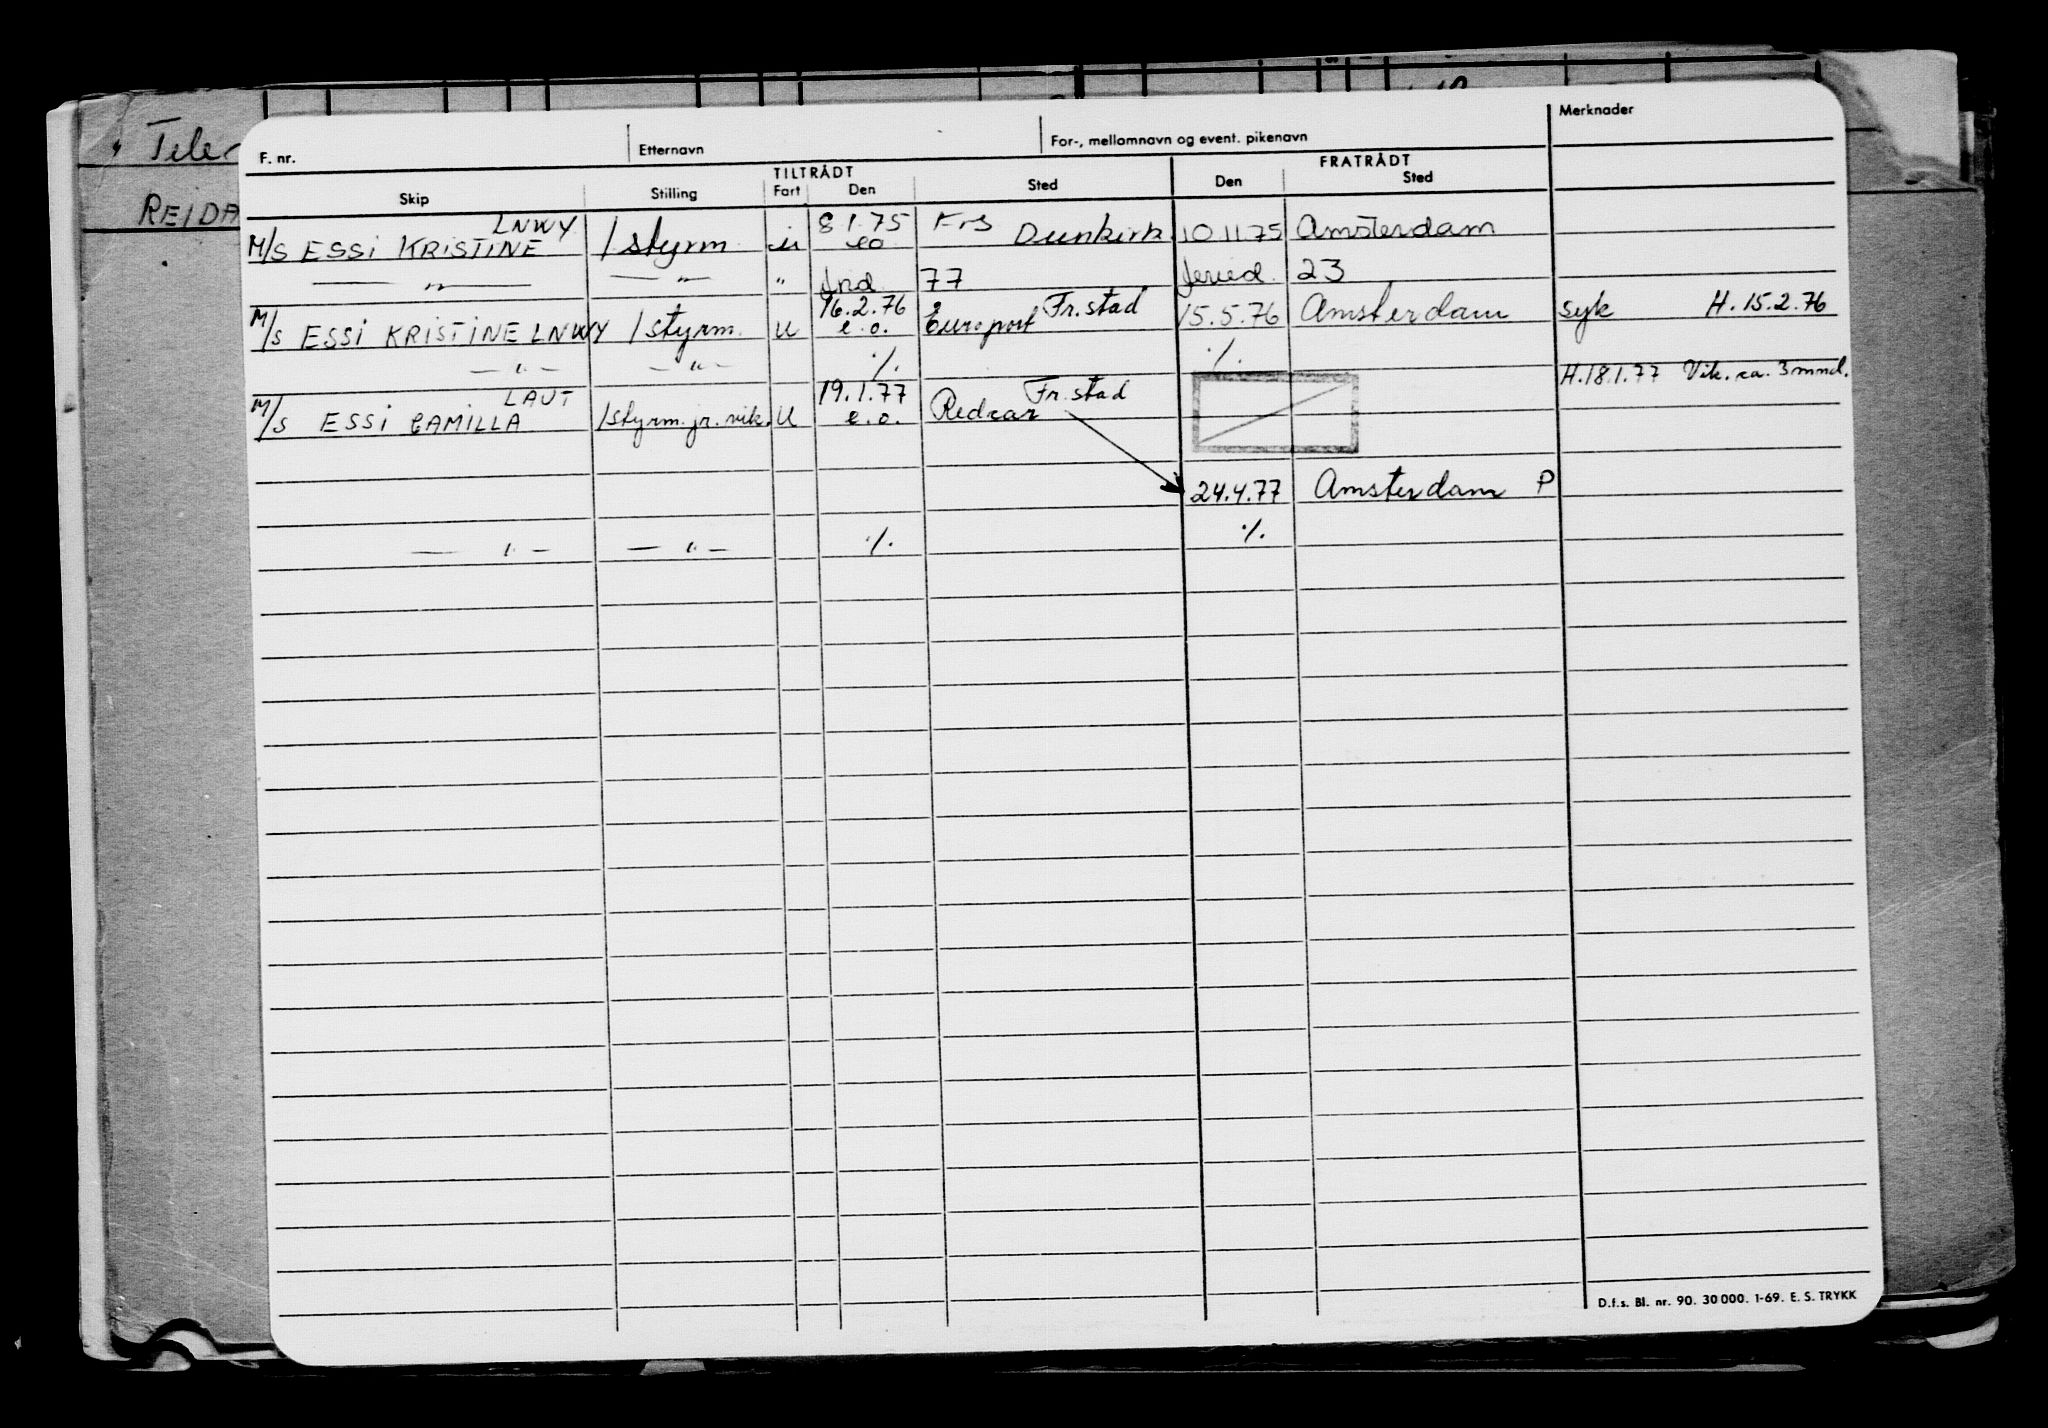 Teler
REIDA
F. nr. Etternavn For-, mellomnavn og event. pikenavn Merknader
TILTRÅDT FRATRÅDT
Skip Stilling Fart Den Sted Den Sted
LNWY 8.1.75 Frs
M/S ESSI KRISTINE 1 styrm u eo Dunkirk 10.11.75 Amsterdam
— " — — " — " 77 23
16.2.76 Fr.stad
M/S ESSI KRISTINE LNWY 1 styrm. U e.o. Europort 15.5.76 Amsterdam syk H. 15.2.76
— " — — " — ./. ./.
H.18.1.77 Vik. ca. 3 mnd.
LAUT 19.1.77 Fr.stad
M/S ESSI CAMILLA 1 styrm. jr. vik. U e.o. Redcar
24.4.77 Amsterdam P
— " — — " — ./. ./.
D.f.s. Bl. nr. 90. 30 000. 1-69. E. S. TRYKK